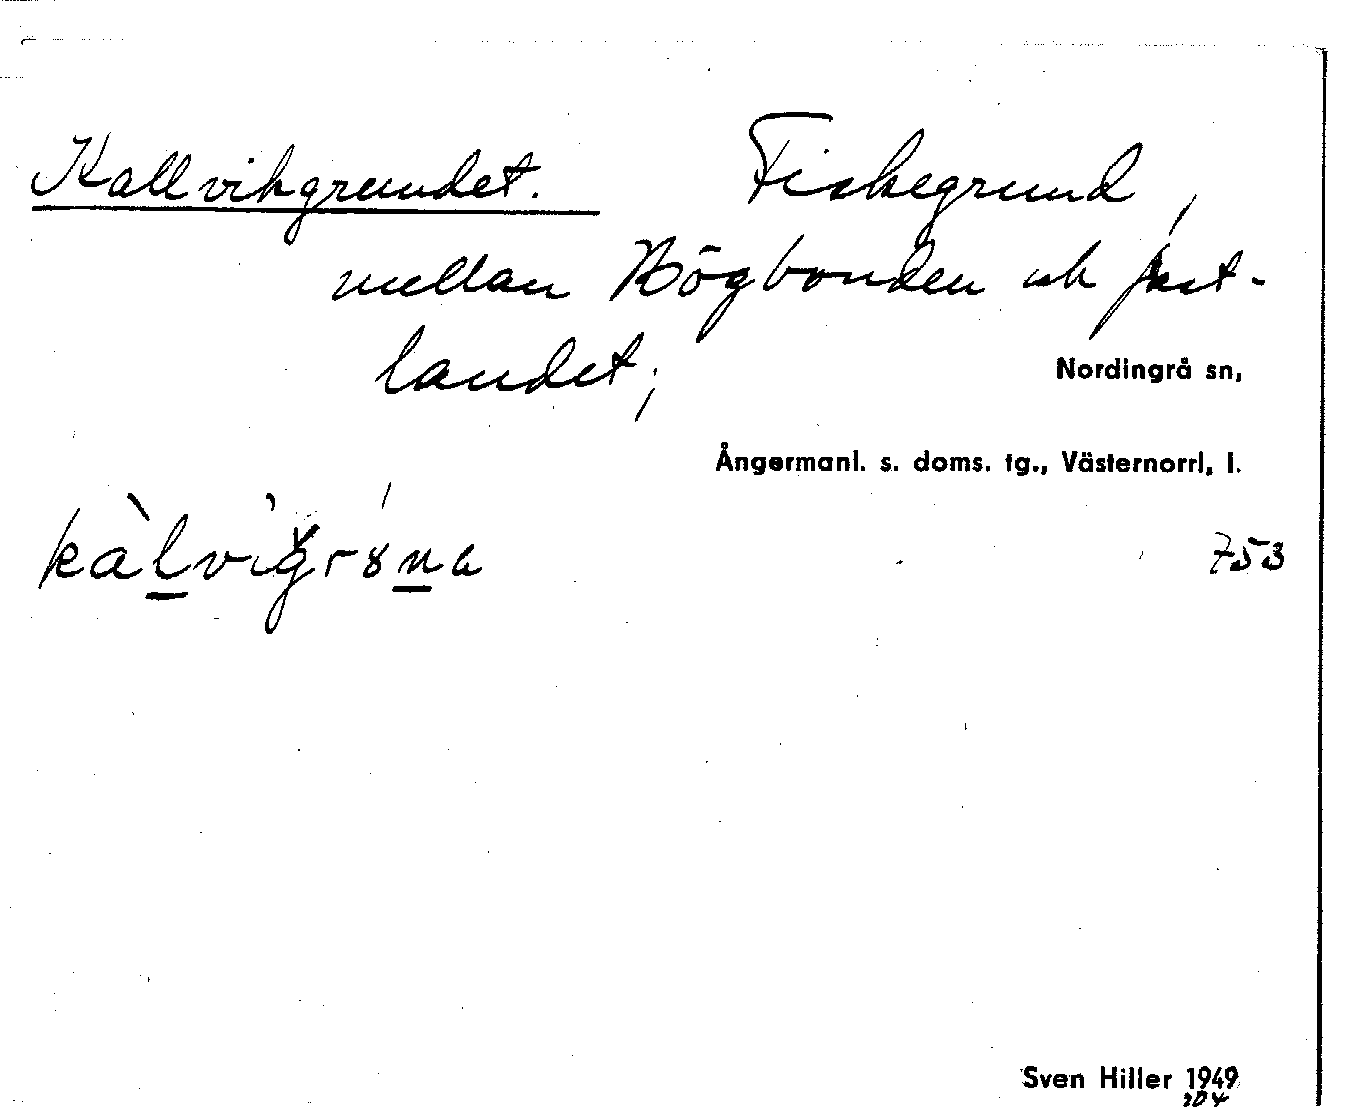 Kallvikgrundet. Fiskegrund,
mellan Högbonden och fast-
landet;
Nordingrå sn,
Ångermanl. s. doms. tg., Västernorrl. l.
753
Sven Hiller 1949
204